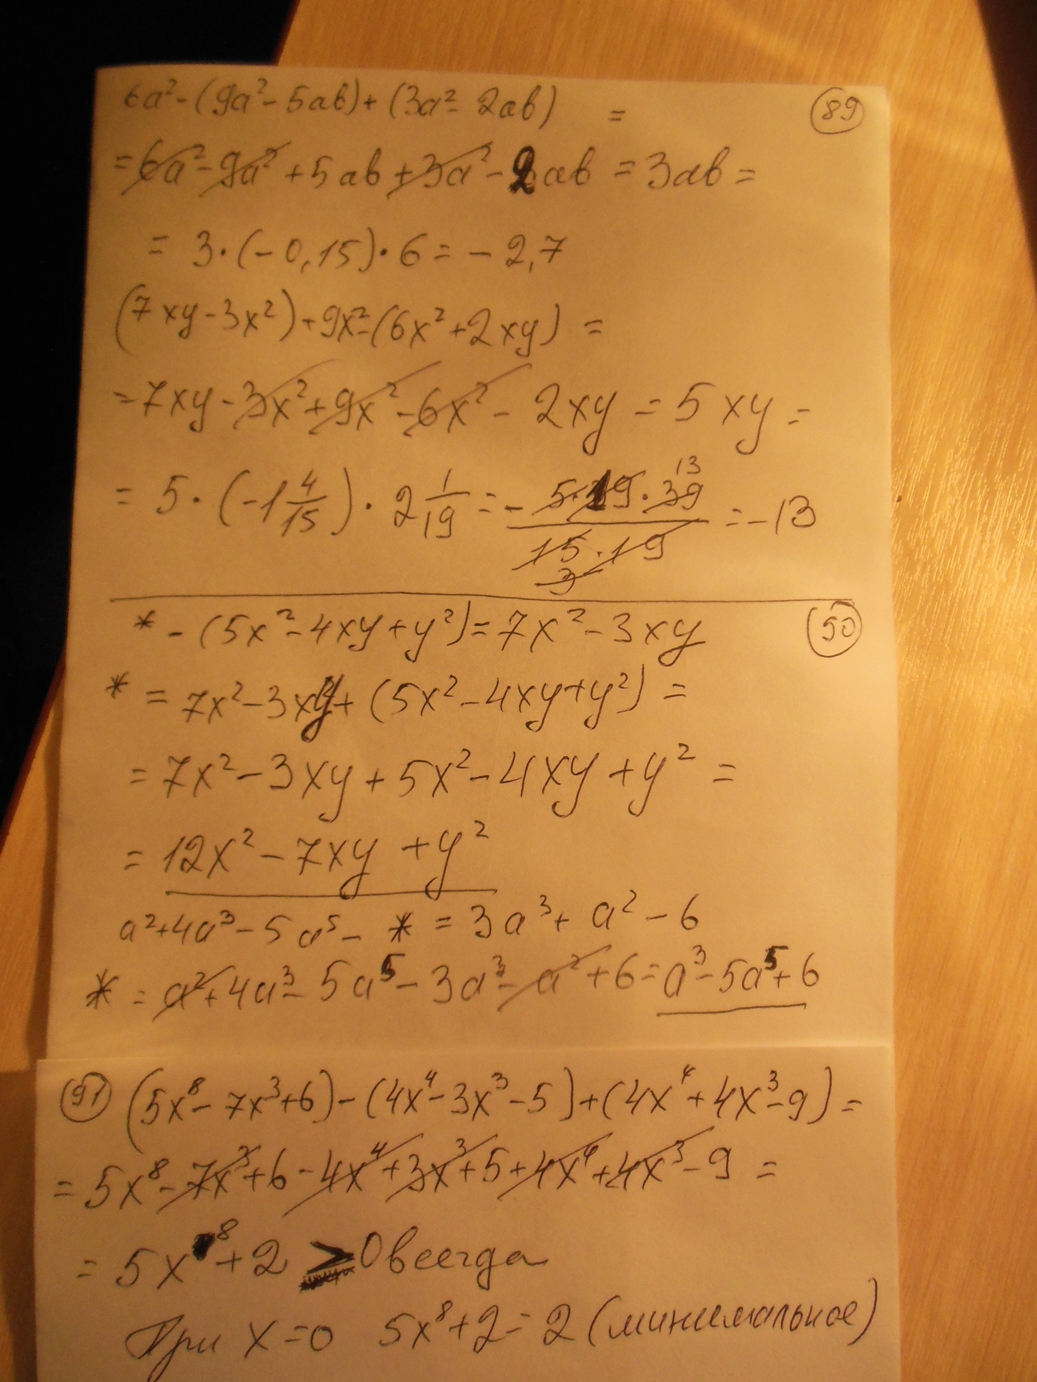 6a² - (9a² - 5ab) + (3a² - 2ab) = 89
= 6a² - 9a² + 5ab + 3a² - 2ab = 3ab =
= 3 · (-0,15) · 6 = -2,7
(7xy - 3x²) + 9x² - (6x² + 2xy) =
= 7xy - 3x² + 9x² - 6x² - 2xy = 5xy =
= 5 · (-1 4/15) · 2 1/19 = - 5·19·39 13 / 15·19 3 = -13
* - (5x² - 4xy + y²) = 7x² - 3xy 50
* = 7x² - 3xy + (5x² - 4xy + y²) =
= 7x² - 3xy + 5x² - 4xy + y² =
= 12x² - 7xy + y²
a² + 4a³ - 5a⁵ - * = 3a³ + a² - 6
* = a² + 4a³ - 5a⁵ - 3a³ - a² + 6 = a³ - 5a⁵ + 6
91 (5x⁸ - 7x³ + 6) - (4x⁴ - 3x³ - 5) + (4x⁴ + 4x³ - 9) =
= 5x⁸ - 7x³ + 6 - 4x⁴ + 3x³ + 5 + 4x⁴ + 4x³ - 9 =
= 5x⁸ + 2 > 0 всегда
При x = 0 5x⁸ + 2 = 2 (минимальное)